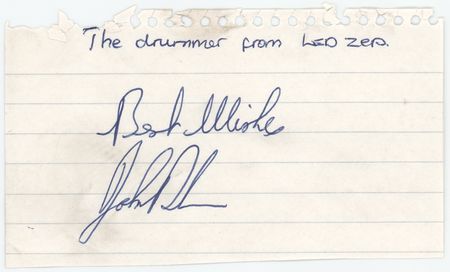 The drummer from LED ZEP.
Best Wishes
John B